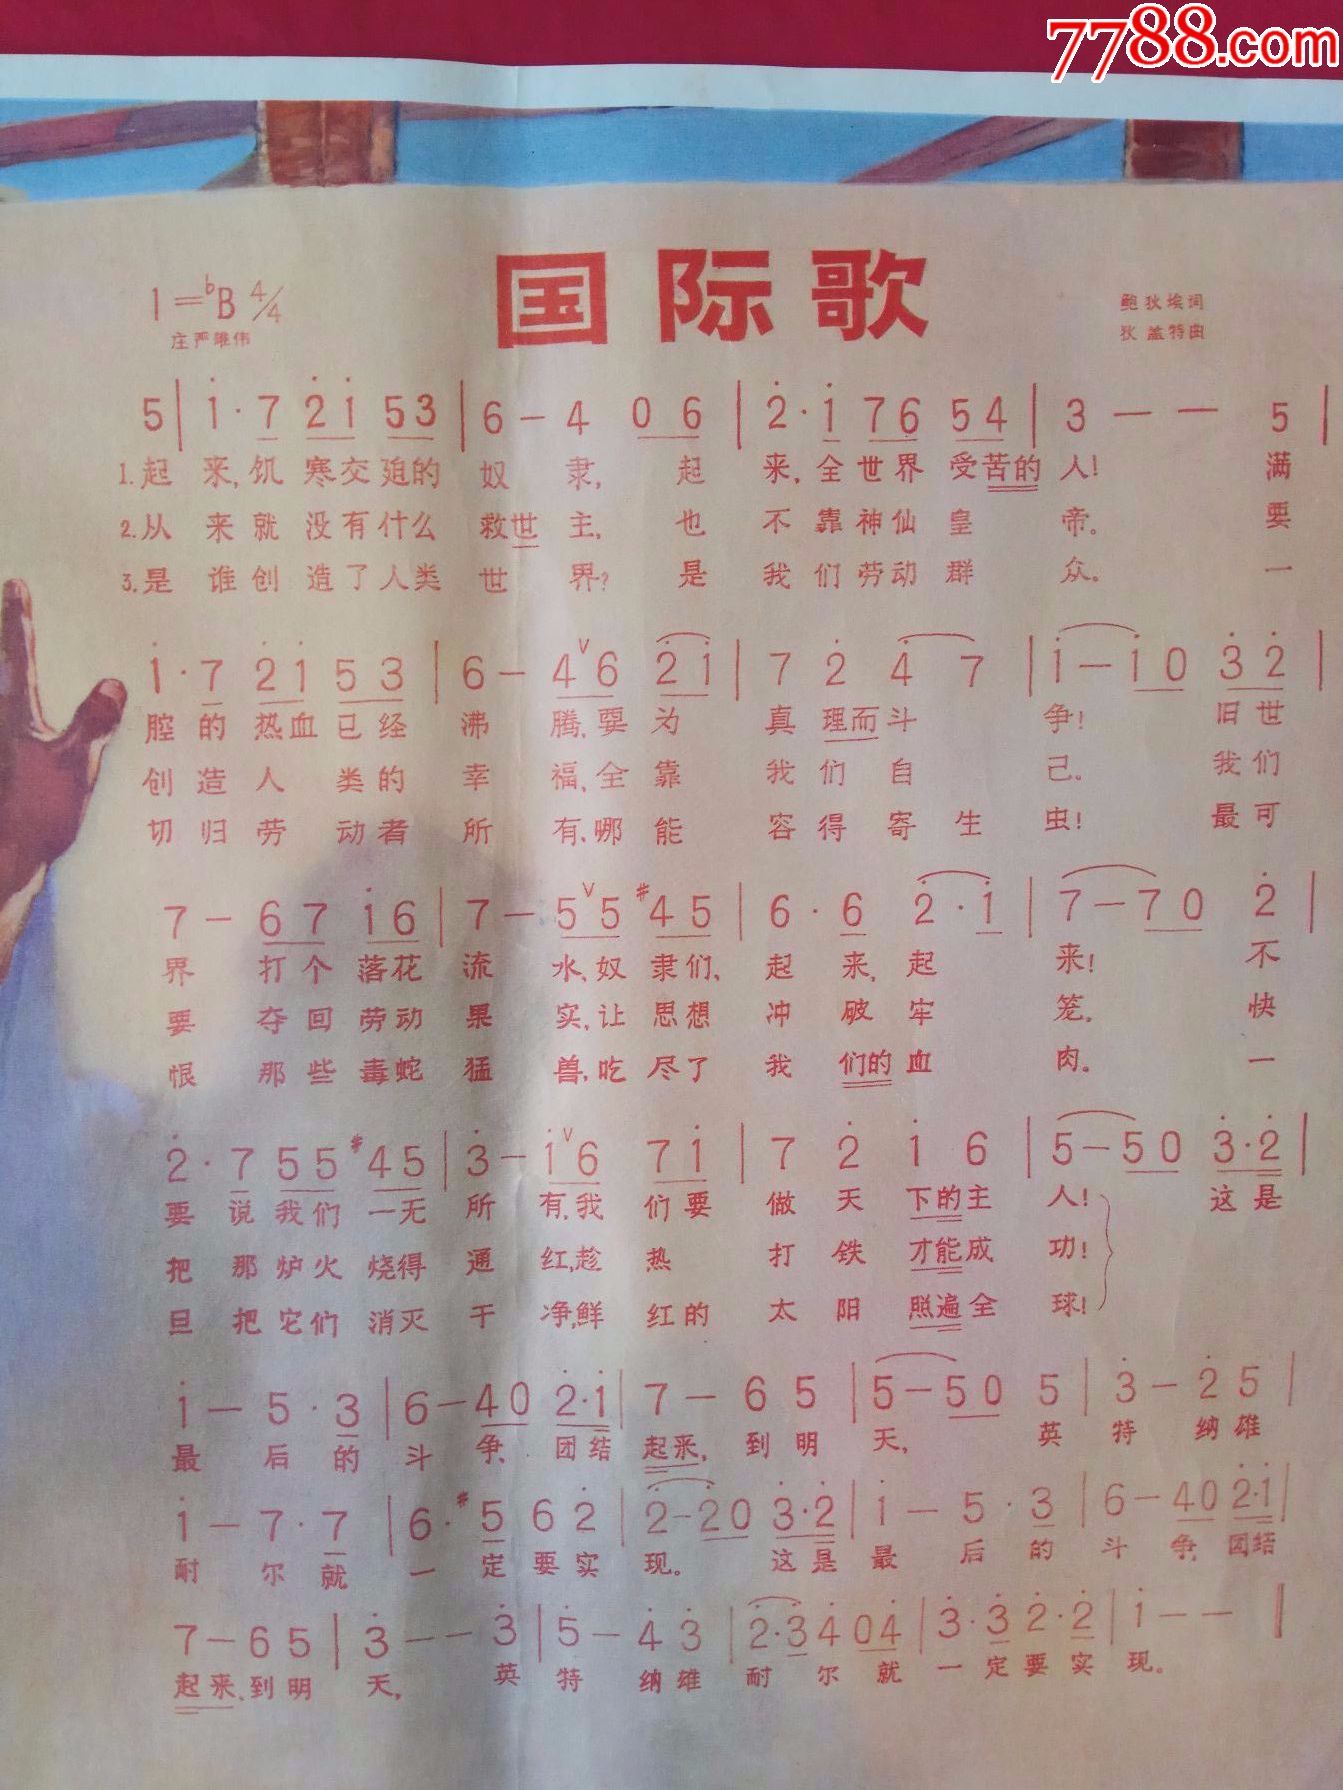 7788.com
国际歌
1=♭B 4/4
庄严雄伟
鲍狄埃词
狄盖特曲
5 | i·7 2̇i 53 | 6 - 4 06 | 2̇·i 76 54 | 3 - - 5 |
1.起 来,饥寒交迫的奴隶,起来,全世界受苦的人! 满
2.从来就没有什么救世主,也不靠神仙皇帝。 要
3.是谁创造了人类世界?是我们劳动群众。 一
i·7 2̇i 53 | 6 - 4∨6 2̇i | 7 2̇ 4̇ 7 | i - i0 3̇2̇ |
腔的热血已经沸腾,要为真理而斗争! 旧世
创造人类的幸福,全靠我们自己。 我们
切归劳动者所有,哪能容得寄生虫! 最可
7 - 67 i6 | 7 - 5∨5 #45 | 6·6 2̇·i | 7 - 70 2̇ |
界打个落花流水,奴隶们,起来,起来! 不
要夺回劳动果实,让思想冲破牢笼。 快
恨那些毒蛇猛兽,吃尽了我们的血肉。 一
2̇·7 55 #45 | 3̇ - i∨6 7i | 7 2̇ i 6 | 5 - 50 3̇·2̇ |
要说我们一无所有,我们要做天下的主人! 这是
把那炉火烧得通红,趁热打铁才能成功!
旦把它们消灭干净,鲜红的太阳照遍全球!
i - 5·3 | 6 - 40 2̇·i | 7 - 6 5 | 5 - 50 5 | 3̇ - 2̇ 5 |
最后的斗争,团结起来,到明天, 英特纳雄
i - 7·7 | 6·#5 6 2̇ | 2̇ - 2̇0 3̇·2̇ | i - 5·3 | 6 - 40 2̇·i |
耐尔就一定要实现。 这是最后的斗争,团结
7 - 6 5 | 3̇ - - 3̇ | 5̇ - 4̇ 3̇ | 2̇·3̇ 4̇ 04̇ | 3̇·3̇ 2̇·2̇ | i - - |
起来,到明天, 英特纳雄耐尔就一定要实现。